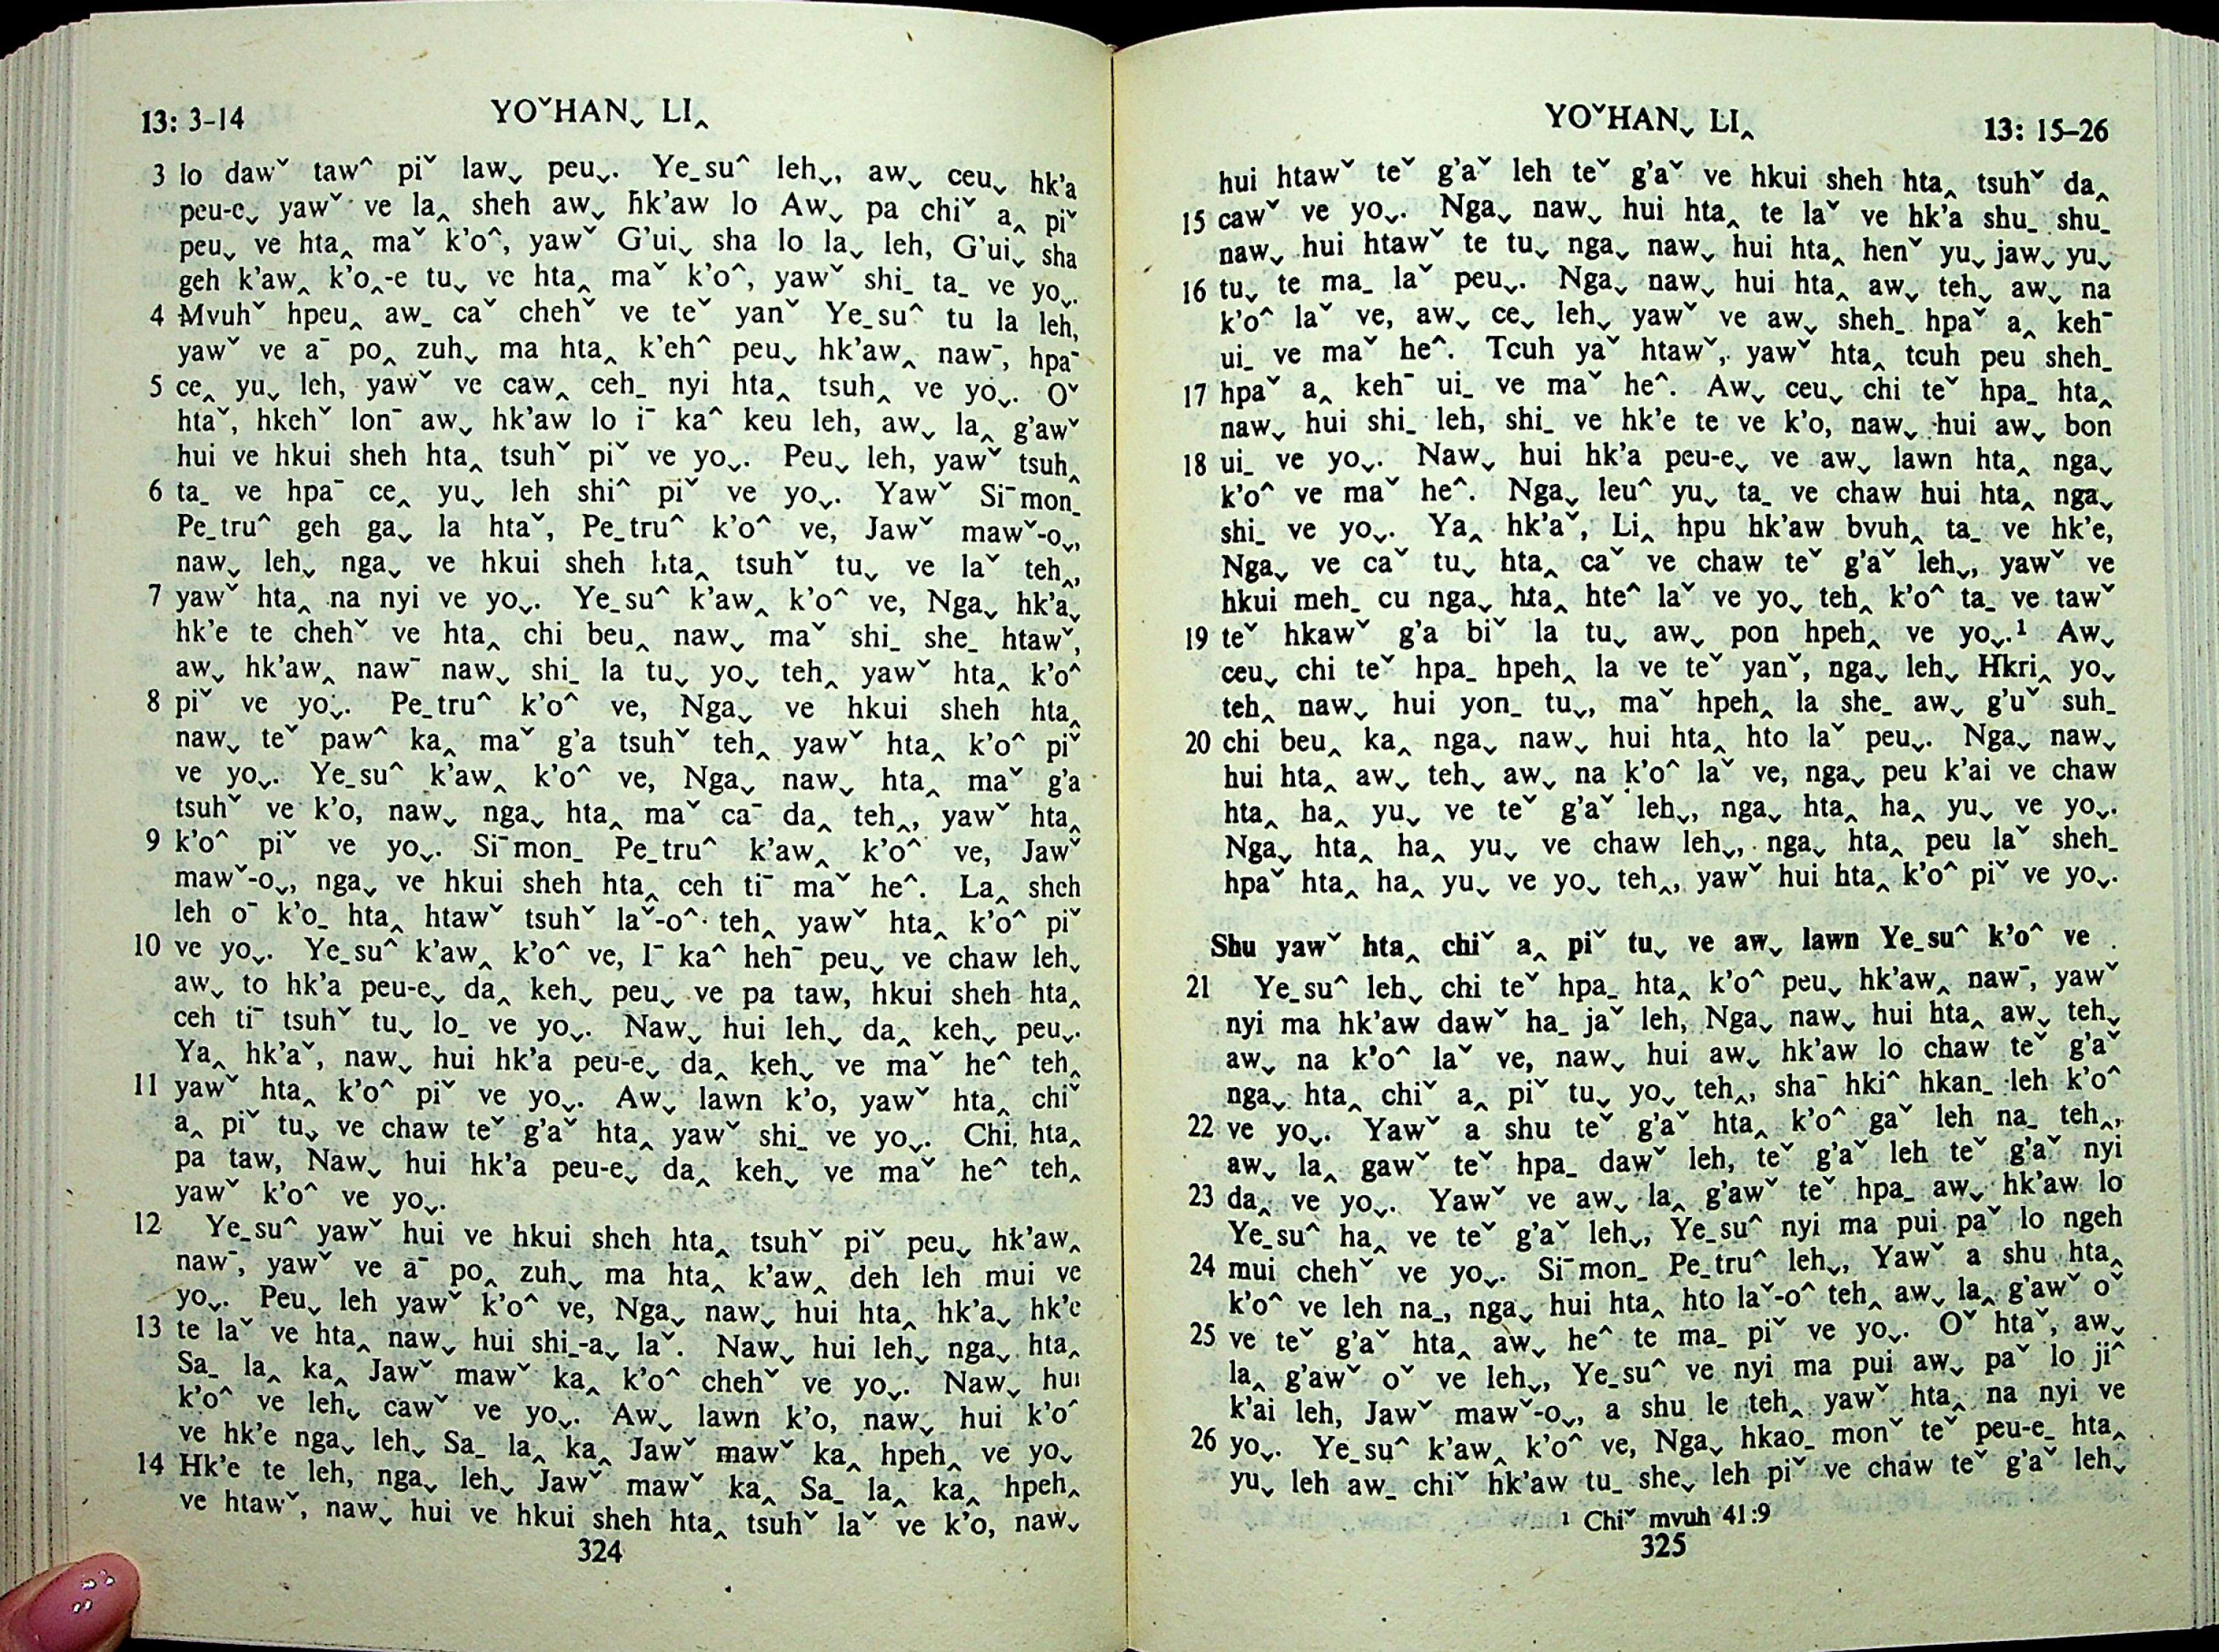 13: 3-14
YOˇHANˬ LI‸
3 lo dawˇ tawˆ piˇ lawˬ peuˬ. Ye_suˆ lehˬ, awˬ ceuˬ hk'a
peu-eˬ yawˇ ve la‸ sheh awˬ hk'aw lo Awˬ pa chiˇ a‸ piˇ
peuˬ ve hta‸ maˇ k'oˆ, yawˇ G'uiˬ sha lo laˬ leh, G'uiˬ sha
geh k'aw‸ k'o‸-e tuˬ ve hta‸ maˇ k'oˆ, yawˇ shi_ ta_ ve yoˬ.
4 Mvuhˇ hpeu‸ aw_ caˇ chehˇ ve teˇ yanˇ Ye_suˆ tu la leh,
yawˇ ve aˉ po‸ zuhˬ ma hta‸ k'ehˆ peuˬ hk'aw‸ nawˉ, hpaˉ
5 ce‸ yuˬ leh, yawˇ ve caw‸ ceh_ nyi hta‸ tsuh‸ ve yoˬ. Oˇ
htaˇ, hkehˇ lonˉ awˬ hk'aw lo iˉ kaˆ keu leh, awˬ la‸ g'awˇ
hui ve hkui sheh hta‸ tsuhˇ piˇ ve yoˬ. Peuˬ leh, yawˇ tsuh‸
6 ta_ ve hpaˉ ce‸ yuˬ leh shiˆ piˇ ve yoˬ. Yawˇ Siˉmon_
Pe_truˆ geh gaˬ la htaˇ, Pe_truˆ k'oˆ ve, Jawˇ mawˇ-oˬ,
nawˬ lehˬ, ngaˬ ve hkui sheh hta‸ tsuhˇ tuˬ ve laˇ teh‸,
7 yawˇ hta‸ na nyi ve yoˬ. Ye_suˆ k'aw‸ k'oˆ ve, Ngaˬ hk'aˬ
hk'e te chehˇ ve hta‸ chi beu‸ nawˬ maˇ shi_ she_ htawˇ,
awˬ hk'aw‸ nawˉ nawˬ shi_ la tuˬ yoˬ teh‸ yawˇ hta‸ k'oˆ
8 piˇ ve yoˬ. Pe_truˆ k'oˆ ve, Ngaˬ ve hkui sheh hta‸
nawˬ teˇ pawˆ ka‸ maˇ g'a tsuhˇ teh‸ yawˇ hta‸ k'oˆ piˇ
ve yoˬ. Ye_suˆ k'aw‸ k'oˆ ve, Ngaˬ nawˬ hta‸ maˇ g'a
tsuhˇ ve k'o, nawˬ ngaˬ hta‸ maˇ caˉ da‸ teh‸, yawˇ hta‸
9 k'oˆ piˇ ve yoˬ. Siˉmon_ Pe_truˆ k'aw‸ k'oˆ ve, Jawˇ
mawˇ-oˬ, ngaˬ ve hkui sheh hta‸ ceh tiˉ maˇ heˆ. La‸ sheh
leh oˉ k'o_ hta‸ htawˇ tsuhˇ laˇ-oˆ teh‸ yawˇ hta‸ k'oˆ piˇ
10 ve yoˬ. Ye_suˆ k'aw‸ k'oˆ ve, Iˉ kaˆ hehˉ peuˬ ve chaw lehˬ
awˬ to hk'a peu-eˬ da‸ kehˬ peuˬ ve pa taw, hkui sheh hta‸
ceh tiˉ tsuhˇ tuˬ lo_ ve yoˬ. Nawˬ hui lehˬ da‸ kehˬ peuˬ.
Ya‸ hk'aˇ, nawˬ hui hk'a peu-eˬ da‸ kehˬ ve maˇ heˆ teh‸
11 yawˇ hta‸ k'oˆ piˇ ve yoˬ. Awˬ lawn k'o, yawˇ hta‸ chiˇ
a‸ piˇ tuˬ ve chaw teˇ g'aˇ hta‸ yawˇ shi_ ve yoˬ. Chi, hta‸
pa taw, Nawˬ hui hk'a peu-eˬ da‸ kehˬ ve maˇ heˆ teh‸
yawˇ k'oˆ ve yoˬ.
12 Ye_suˆ yawˇ hui ve hkui sheh hta‸ tsuhˇ piˇ peuˬ hk'aw‸
nawˉ, yawˇ ve aˉ po‸ zuhˬ ma hta‸ k'aw‸ deh leh mui ve
yoˬ. Peuˬ leh yawˇ k'oˆ ve, Ngaˬ nawˬ hui hta‸ hk'aˬ hk'e
13 te laˇ ve hta‸ nawˬ hui shi_-aˬ laˇ. Nawˬ hui lehˬ ngaˬ hta‸
Sa_ la‸ ka‸ Jawˇ mawˇ ka‸ k'oˆ chehˇ ve yoˬ. Nawˬ hui
k'oˆ ve lehˬ cawˇ ve yoˬ. Awˬ lawn k'o, nawˬ hui k'oˆ
ve hk'e ngaˬ lehˬ Sa_ la‸ ka‸ Jawˇ mawˇ ka‸ hpeh‸ ve yoˬ
14 Hk'e te leh, ngaˬ lehˬ Jawˇ mawˇ ka‸ Sa_ la‸ ka‸ hpeh‸
ve htawˇ, nawˬ hui ve hkui sheh hta‸ tsuhˇ laˇ ve k'o, nawˬ
324
YOˇHANˬ LI‸
13: 15-26
hui htawˇ teˇ g'aˇ leh teˇ g'aˇ ve hkui sheh hta‸ tsuhˇ da‸
15 cawˇ ve yoˬ. Ngaˬ nawˬ hui hta‸ te laˇ ve hk'a shu_ shu_
nawˬ hui htawˇ te tuˬ ngaˬ nawˬ hui hta‸ henˇ yuˬ jawˬ yuˬ
16 tuˬ te ma_ laˇ peuˬ. Ngaˬ nawˬ hui hta‸ awˬ tehˬ awˬ na
k'oˆ laˇ ve, awˬ ceˬ lehˬ yawˇ ve awˬ sheh_ hpaˇ a‸ kehˉ
ui_ ve maˇ heˆ. Tcuh yaˇ htawˇ, yawˇ hta‸ tcuh peu sheh_
17 hpaˇ a‸ kehˉ ui_ ve maˇ heˆ. Awˬ ceuˬ chi teˇ hpa_ hta‸
nawˬ hui shi_ leh, shi_ ve hk'e te ve k'o, nawˬ hui awˬ bon
18 ui_ ve yoˬ. Nawˬ hui hk'a peu-eˬ ve awˬ lawn hta‸ ngaˬ
k'oˆ ve maˇ heˆ. Ngaˬ leuˆ yuˬ ta_ ve chaw hui hta‸ ngaˬ
shi_ ve yoˬ. Ya‸ hk'aˇ, Li‸ hpu hk'aw bvuh‸ ta_ ve hk'e,
Ngaˬ ve caˇ tuˬ hta‸ caˇ ve chaw teˇ g'aˇ lehˬ, yawˇ ve
hkui meh_ cu ngaˬ hta‸ hteˆ laˇ ve yoˬ teh‸ k'oˆ ta_ ve tawˇ
19 teˇ hkawˇ g'a biˇ la tuˬ awˬ pon hpeh‸ ve yoˬ.¹ Awˬ
ceuˬ chi teˇ hpa_ hpeh‸ la ve teˇ yanˇ, ngaˬ lehˬ Hkri‸ yoˬ
teh‸ nawˬ hui yon_ tuˬ, maˇ hpeh‸ la she_ awˬ g'uˇ suh_
20 chi beu‸ ka‸ ngaˬ nawˬ hui hta‸ hto laˇ peuˬ. Ngaˬ nawˬ
hui hta‸ awˬ tehˬ awˬ na k'oˆ laˇ ve, ngaˬ peu k'ai ve chaw
hta‸ ha‸ yuˬ ve teˇ g'aˇ lehˬ, ngaˬ hta‸ ha‸ yuˬ ve yoˬ.
Ngaˬ hta‸ ha‸ yuˬ ve chaw lehˬ, ngaˬ hta‸ peu laˇ sheh_
hpaˇ hta‸ ha‸ yuˬ ve yoˬ teh‸, yawˇ hui hta‸ k'oˆ piˇ ve yoˬ.
Shu yawˇ hta‸ chiˇ a‸ piˇ tuˬ ve awˬ lawn Ye_suˆ k'oˆ ve
21 Ye_suˆ lehˬ chi teˇ hpa_ hta‸ k'oˆ peuˬ hk'aw‸ nawˉ, yawˇ
nyi ma hk'aw dawˇ ha_ jaˇ leh, Ngaˬ nawˬ hui hta‸ awˬ tehˬ
awˬ na k'oˆ laˇ ve, nawˬ hui awˬ hk'aw lo chaw teˇ g'aˇ
ngaˬ hta‸ chiˇ a‸ piˇ tuˬ yoˬ teh‸, shaˉ hkiˆ hkan_ leh k'oˆ
22 ve yoˬ. Yawˇ a shu teˇ g'aˇ hta‸ k'oˆ gaˇ leh na_ teh‸,
awˬ la‸ gawˇ teˇ hpa_ dawˇ leh, teˇ g'aˇ leh teˇ g'aˇ nyi
23 da‸ ve yoˬ. Yawˇ ve awˬ la‸ g'awˇ teˇ hpa_ awˬ hk'aw lo
Ye_suˆ ha‸ ve teˇ g'aˇ lehˬ, Ye_suˆ nyi ma pui paˇ lo ngeh
24 mui chehˇ ve yoˬ. Siˉmon_ Pe_truˆ lehˬ, Yawˇ a shu hta‸
k'oˆ ve leh na_, ngaˬ hui hta‸ hto laˇ-oˆ teh‸ awˬ la‸ g'awˇ oˇ
25 ve teˇ g'aˇ hta‸ awˬ heˆ te ma_ piˇ ve yoˬ. Oˇ htaˇ, awˬ
la‸ g'awˇ oˇ ve lehˬ, Ye_suˆ ve nyi ma pui awˬ paˇ lo jiˆ
k'ai leh, Jawˇ mawˇ-oˬ, a shu le teh‸ yawˇ hta‸ na nyi ve
26 yoˬ. Ye_suˆ k'aw‸ k'oˆ ve, Ngaˬ hkao_ monˇ teˇ peu-e_ hta‸
yuˬ leh aw_ chiˇ hk'aw tu_ sheˬ leh piˇ ve chaw teˇ g'aˇ lehˬ
¹ Chiˇ mvuh 41:9
325